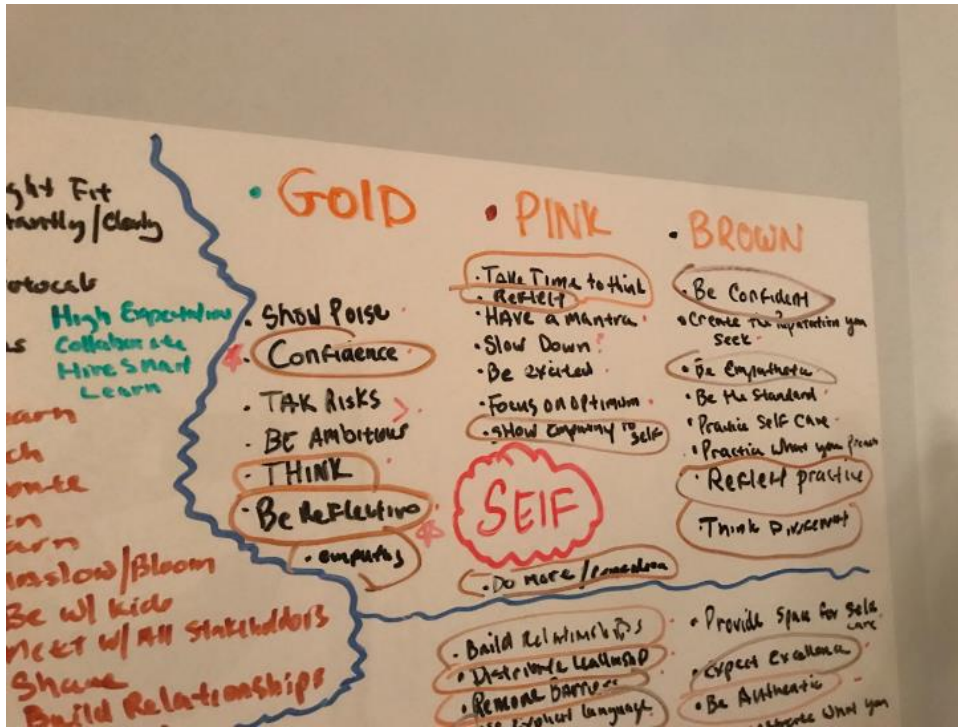 ght Fit
tantly/Clearly
otocals
High Expectation
Collaborate
Hire Smart
Learn
earn
ch
en
arn
aslow/Bloom
Be w/ kids
Meet w/ All Stakeholders
Share
Build Relationships
• GOLD
• Show Poise
• Confidence
• TAK RISKS
• BE Ambitious
• THINK
• Be Reflective
• empathy
• PINK
• Take Time to think
• Reflect
• HAVE a mantra
• Slow Down
• Be excited
• Focus on optimum
• Show Empathy to self
SElF
• Do more /
• BROWN
• Be Confident
• Create the Reputation you
Seek
• Be Empathetic
• Be the Standard
• Practice Self Care
• Practice what you Preach
• Reflect practice
• Think Divergent
• Build Relationships
• Distribute Leadership
• Remove Barriers
explicit language
• Provide Space for Self
care
• expect Excellence
• Be Authentic
what you